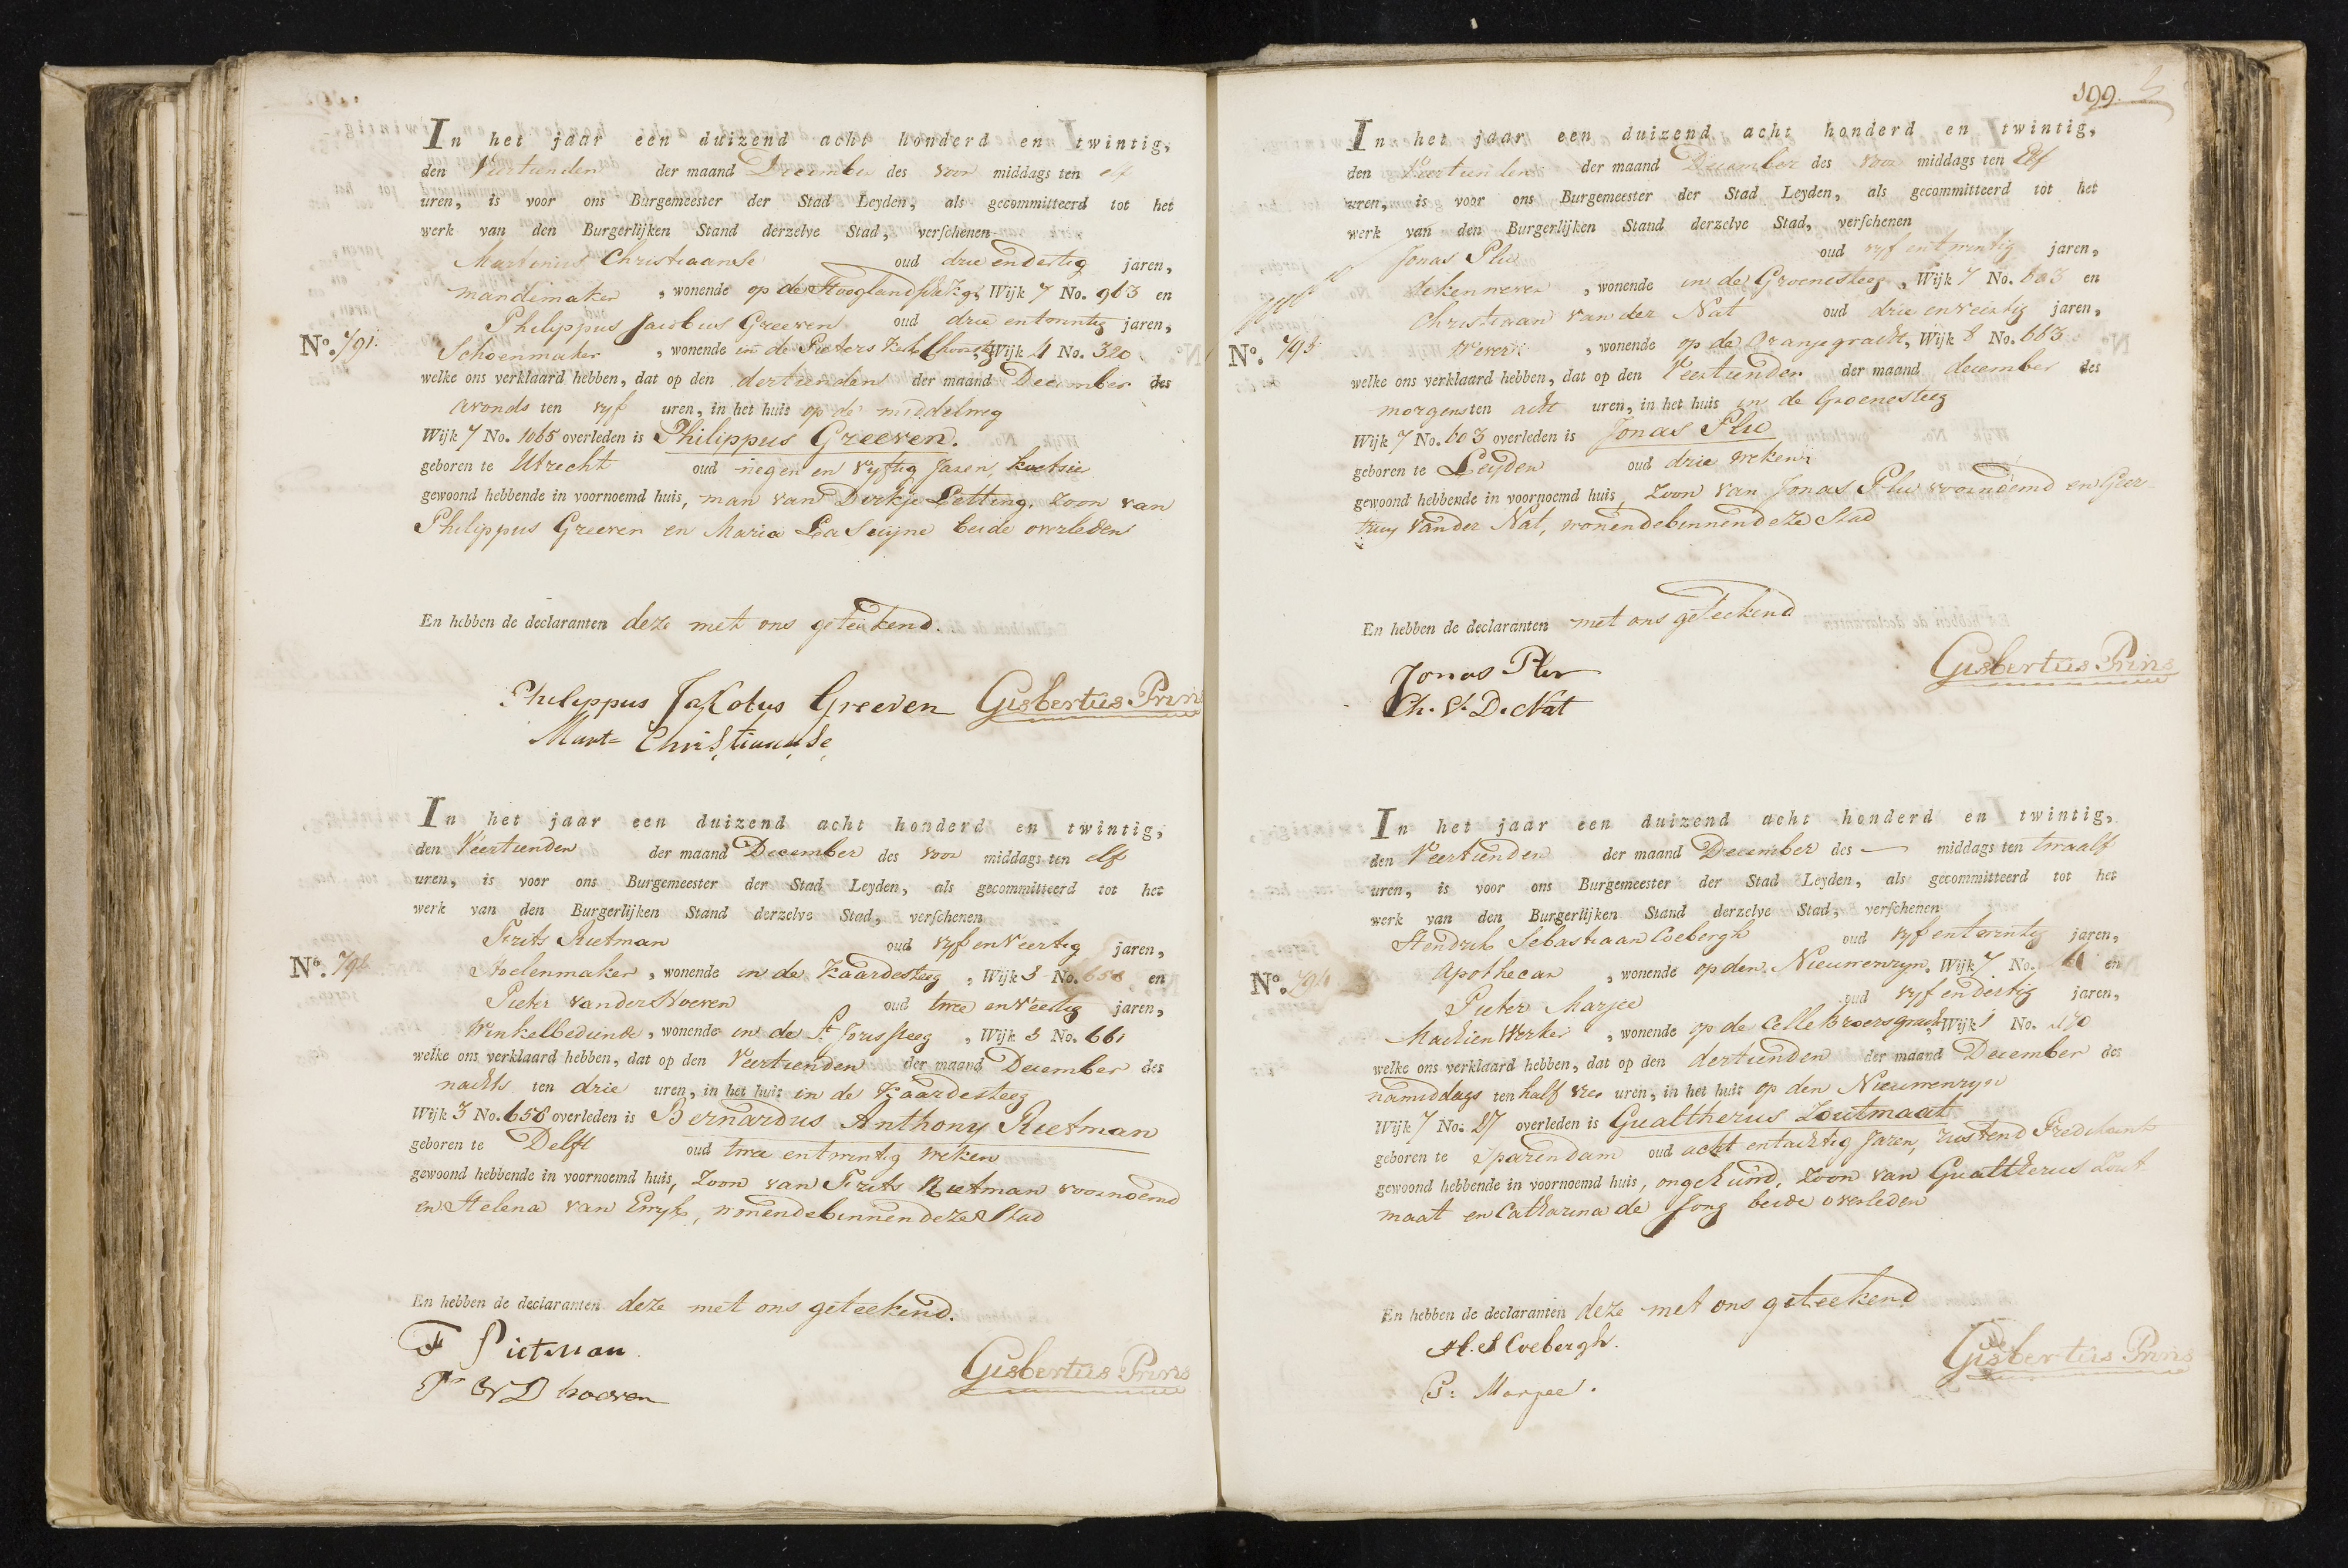 In het jaar een duizend acht honderd en twintig,
den Veertienden der maand December des voor middags ten elf
uren, is voor ons Burgemeester der Stad Leyden, als gecommitteerd tot het
werk van den Burgerlijken Stand derzelve Stad, verschenen
Martinus Christiaanse oud drie endertig jaren,
mandemaker, wonende op de Hooglandsk:kg:, Wijk 7 No. 963 en
Philippus Jacobus Greeven oud drie entwintig jaren,
No. 791. Schoenmaker, wonende in de Pieters kerk Choorst, Wijk 4 No. 320
welke ons verklaard hebben, dat op den dertienden der maand December des
avonds ten vyf uren, in het huis op de middelweg
Wijk 7 No. 1065 overleden is Philippus Greeven.
geboren te Utrecht oud negen en vyftig Jaren, koetsier
gewoond hebbende in voornoemd huis, man van Dirkje Letting, zoon van
Philippus Greeven en Maria La Seijne beide overleden
En hebben de declaranten deze met ons geteekend.
Philippus Jakobus Greeven Gisbertus Prins
Mart= Christiaanse
In het jaar een duizend acht honderd en twintig,
den Veertienden der maand December des voor middags ten elf
uren, is voor ons Burgemeester der Stad Leyden, als gecommitteerd tot het
werk van den Burgerlijken Stand derzelve Stad, verschenen
Frits Rietman oud vyf en veertig jaren,
No. 792 Stoelenmaker, wonende in de Kaardesteeg, Wijk 3 No. 658 en
Pieter van der Hoeven oud twee en veertig jaren,
Winkelbediende, wonende in de St. Jorissteeg, Wijk 3 No. 661
welke ons verklaard hebben, dat op den Veertienden der maand December des
nachts ten drie uren, in het huis in de Kaardesteeg
Wijk 3 No. 658 overleden is Bernardus Anthony Rietman
geboren te Delft oud twee entwintig weken
gewoond hebbende in voornoemd huis, Zoon van Frits Rietman voornoemd
en Helena van Eryk, wonende binnen deze Stad
En hebben de declaranten deze met ons geteekend.
F Rietman
Pr V D hoeven Gisbertus Prins
199.
In het jaar een duizend acht honderd en twintig,
den Veertienden der maand December des voor middags ten Elf
uren, is voor ons Burgemeester der Stad Leyden, als gecommitteerd tot het
werk van den Burgerlijken Stand derzelve Stad, verschenen
Jonas Plu oud vyf entwintig jaren,
dekenwever, wonende in de Groenesteeg, Wijk 7 No. 603 en
Christiaan van der Nat oud drie en veertig jaren,
No. 793 Wever, wonende op de Oranjegracht, Wijk 8 No. 663
welke ons verklaard hebben, dat op den Veertienden der maand december des
morgens ten acht uren, in het huis in de Groenesteeg
Wijk 7 No. 603 overleden is Jonas Plu
geboren te Leyden oud drie weken
gewoond hebbende in voornoemd huis, zoon van Jonas Plu voornoemd en Geer-
truy van der Nat, wonende binnen deze Stad
En hebben de declaranten met ons geteekend
Jonas Plu Gisbertus Prins
Ch. V. D. Nat
In het jaar een duizend acht honderd en twintig,
den Veertienden der maand December des — middags ten twaalf
uren, is voor ons Burgemeester der Stad Leyden, als gecommitteerd tot het
werk van den Burgerlijken Stand derzelve Stad, verschenen
Hendrik Sebastiaan Coebergh oud vyf entwintig jaren,
No. 794 Apothecar, wonende op den Nieuwenryn, Wijk 7 No. en
Pieter Marjee oud vyf endertig jaren,
Machien Werker, wonende op de Cellebroersgracht, Wijk 1 No. 170
welke ons verklaard hebben, dat op den dertienden der maand December des
namiddags ten half uren, in het huis op den Nieuwenryn
Wijk 7 No. 27 overleden is Gualtherus Zoutmaat
geboren te Sparendam oud acht entachtig Jaren, rustend Predikant
gewoond hebbende in voornoemd huis, ongehuwd, Zoon van Gualtherus Zout
maat en Catharina de Jong beide overleden
En hebben de declaranten deze met ons geteekend
H. S Coebergh. Gisbertus Prins
P: Marjee.